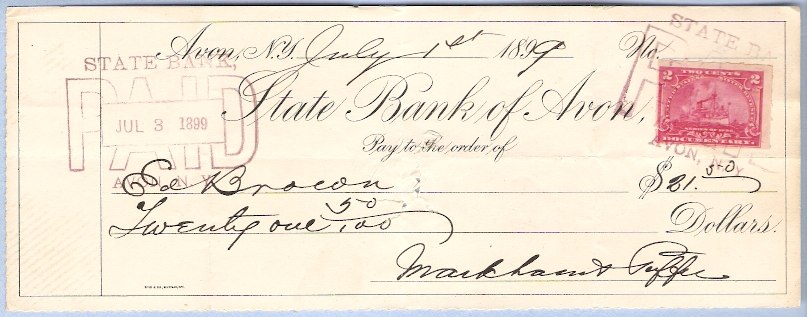 Avon, N.Y. July 1st 1899 No.
STATE BANK,
PAID
JUL 3 1899
AVON, N.Y.
STATE BANK
PAID
AVON, N.Y.
TWO CENTS
2 2
SERIES OF 1898
DOCUMENTARY
State Bank of Avon,
Pay to the order of
Ed $21.50
Twenty one 50/100 Dollars.
Markham &